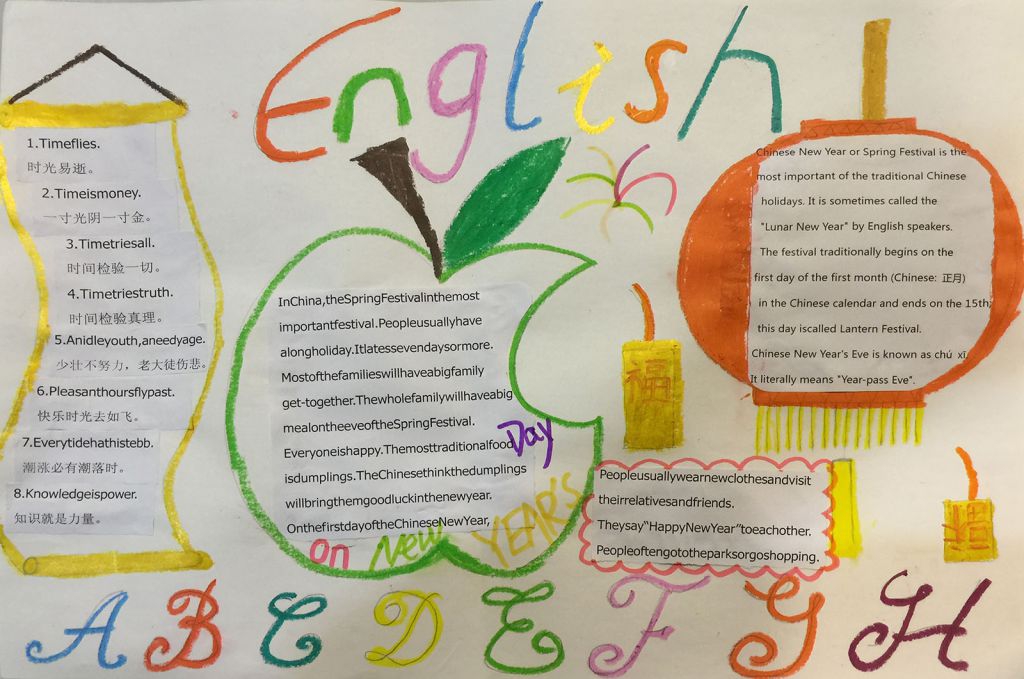 English
1.Timeflies.
时光易逝。
2.Timeismoney.
一寸光阴一寸金。
3.Timetriesall.
时间检验一切。
4.Timetriestruth.
时间检验真理。
5.Anidleyouth,aneedyage.
少壮不努力，老大徒伤悲。
6.Pleasanthoursflypast.
快乐时光去如飞。
7.Everytidehathistebb.
潮涨必有潮落时。
8.Knowledgeispower.
知识就是力量。
InChina,theSpringFestivalinthemost
importantfestival.Peopleusuallyhave
alongholiday.Itlatessevendaysormore.
Mostofthefamilieswillhaveabigfamily
get-together.Thewholefamilywillhaveabig
mealontheeveoftheSpringFestival.
Everyoneishappy.Themosttraditionalfood
isdumplings.TheChinesethinkthedumplings
willbringthemgoodluckinthenewyear.
OnthefirstdayoftheChineseNewYear,
on New YEAR'S Day
福
Chinese New Year or Spring Festival is the
most important of the traditional Chinese
holidays. It is sometimes called the
"Lunar New Year" by English speakers.
The festival traditionally begins on the
first day of the first month (Chinese: 正月)
in the Chinese calendar and ends on the 15th;
this day iscalled Lantern Festival.
Chinese New Year's Eve is known as chú xī.
It literally means "Year-pass Eve".
Peopleusuallywearnewclothesandvisit
theirrelativesandfriends.
Theysay“HappyNewYear”toeachother.
Peopleoftengototheparksorgoshopping.
福
A B C D E F G H